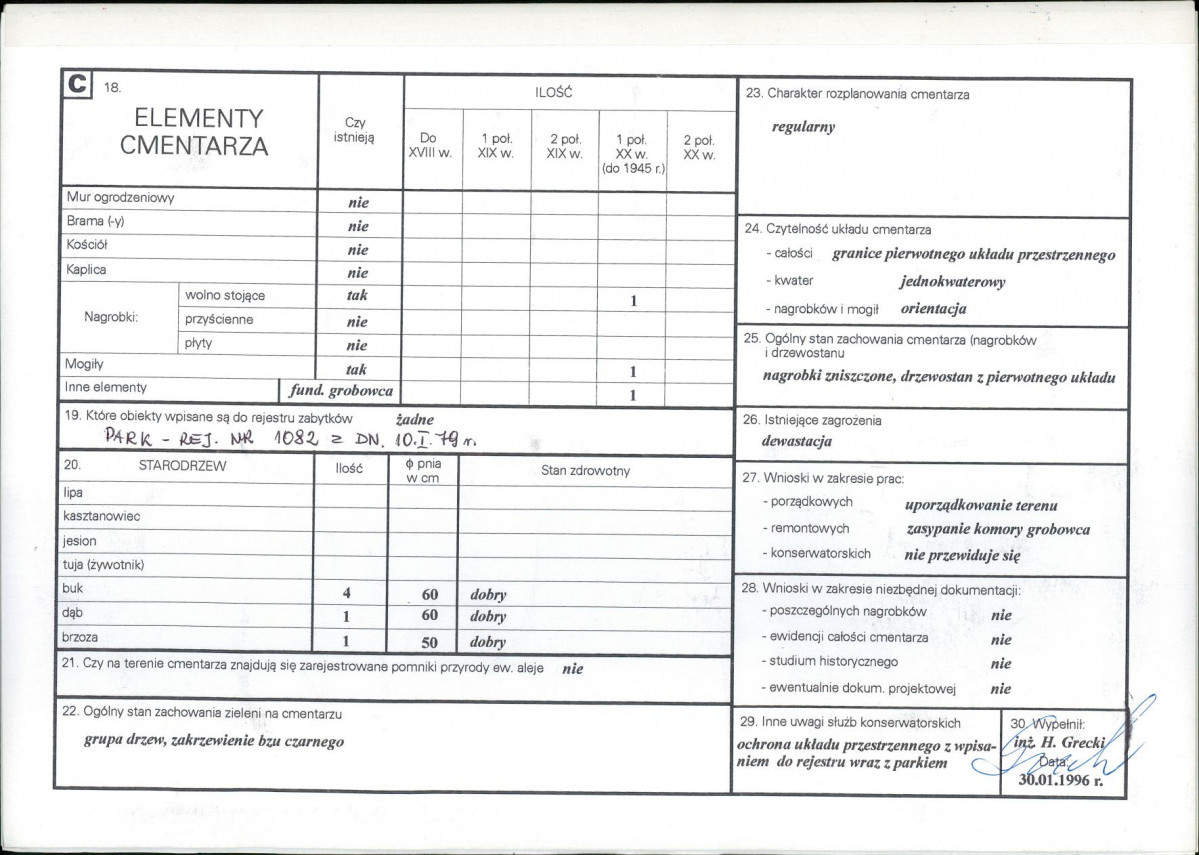 C 18.
ELEMENTY
CMENTARZA
Czy
istnieją
ILOŚĆ
Do
XVIII w.
1 poł.
XIX w.
2 poł.
XIX w.
1 poł.
XX w.
(do 1945 r.)
2 poł.
XX w.
Mur ogrodzeniowy nie
Brama (-y) nie
Kościół nie
Kaplica nie
Nagrobki:
wolno stojące tak 1
przyścienne nie
płyty nie
Mogiły tak 1
Inne elementy fund. grobowca 1
19. Które obiekty wpisane są do rejestru zabytków żadne
PARK - REJ. NR 1082 z DN. 10.I.79 r.
20. STARODRZEW Ilość ϕ pnia
w cm Stan zdrowotny
lipa
kasztanowiec
jesion
tuja (żywotnik)
buk 4 60 dobry
dąb 1 60 dobry
brzoza 1 50 dobry
21. Czy na terenie cmentarza znajdują się zarejestrowane pomniki przyrody ew. aleje nie
22. Ogólny stan zachowania zieleni na cmentarzu
grupa drzew, zakrzewienie bzu czarnego
23. Charakter rozplanowania cmentarza
regularny
24. Czytelność układu cmentarza
- całości granice pierwotnego układu przestrzennego
- kwater jednokwaterowy
- nagrobków i mogił orientacja
25. Ogólny stan zachowania cmentarza (nagrobków
i drzewostanu
nagrobki zniszczone, drzewostan z pierwotnego układu
26. Istniejące zagrożenia
dewastacja
27. Wnioski w zakresie prac:
- porządkowych uporządkowanie terenu
- remontowych zasypanie komory grobowca
- konserwatorskich nie przewiduje się
28. Wnioski w zakresie niezbędnej dokumentacji:
- poszczególnych nagrobków nie
- ewidencji całości cmentarza nie
- studium historycznego nie
- ewentualnie dokum. projektowej nie
29. Inne uwagi służb konserwatorskich
ochrona układu przestrzennego z wpisa-
niem do rejestru wraz z parkiem
30. Wypełnił:
inż. H. Grecki
Data:
30.01.1996 r.